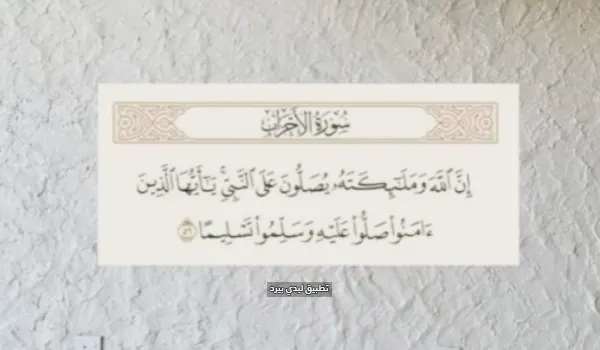 سُورَةُ الأَحۡزَابِ
إِنَّ ٱللَّهَ وَمَلَـٰٓئِكَتَهُۥ يُصَلُّونَ عَلَى ٱلنَّبِيِّۚ يَـٰٓأَيُّهَا ٱلَّذِينَ
ءَامَنُواْ صَلُّواْ عَلَيۡهِ وَسَلِّمُواْ تَسۡلِيمًا ٥٦
تطبيق ليدي بيرد